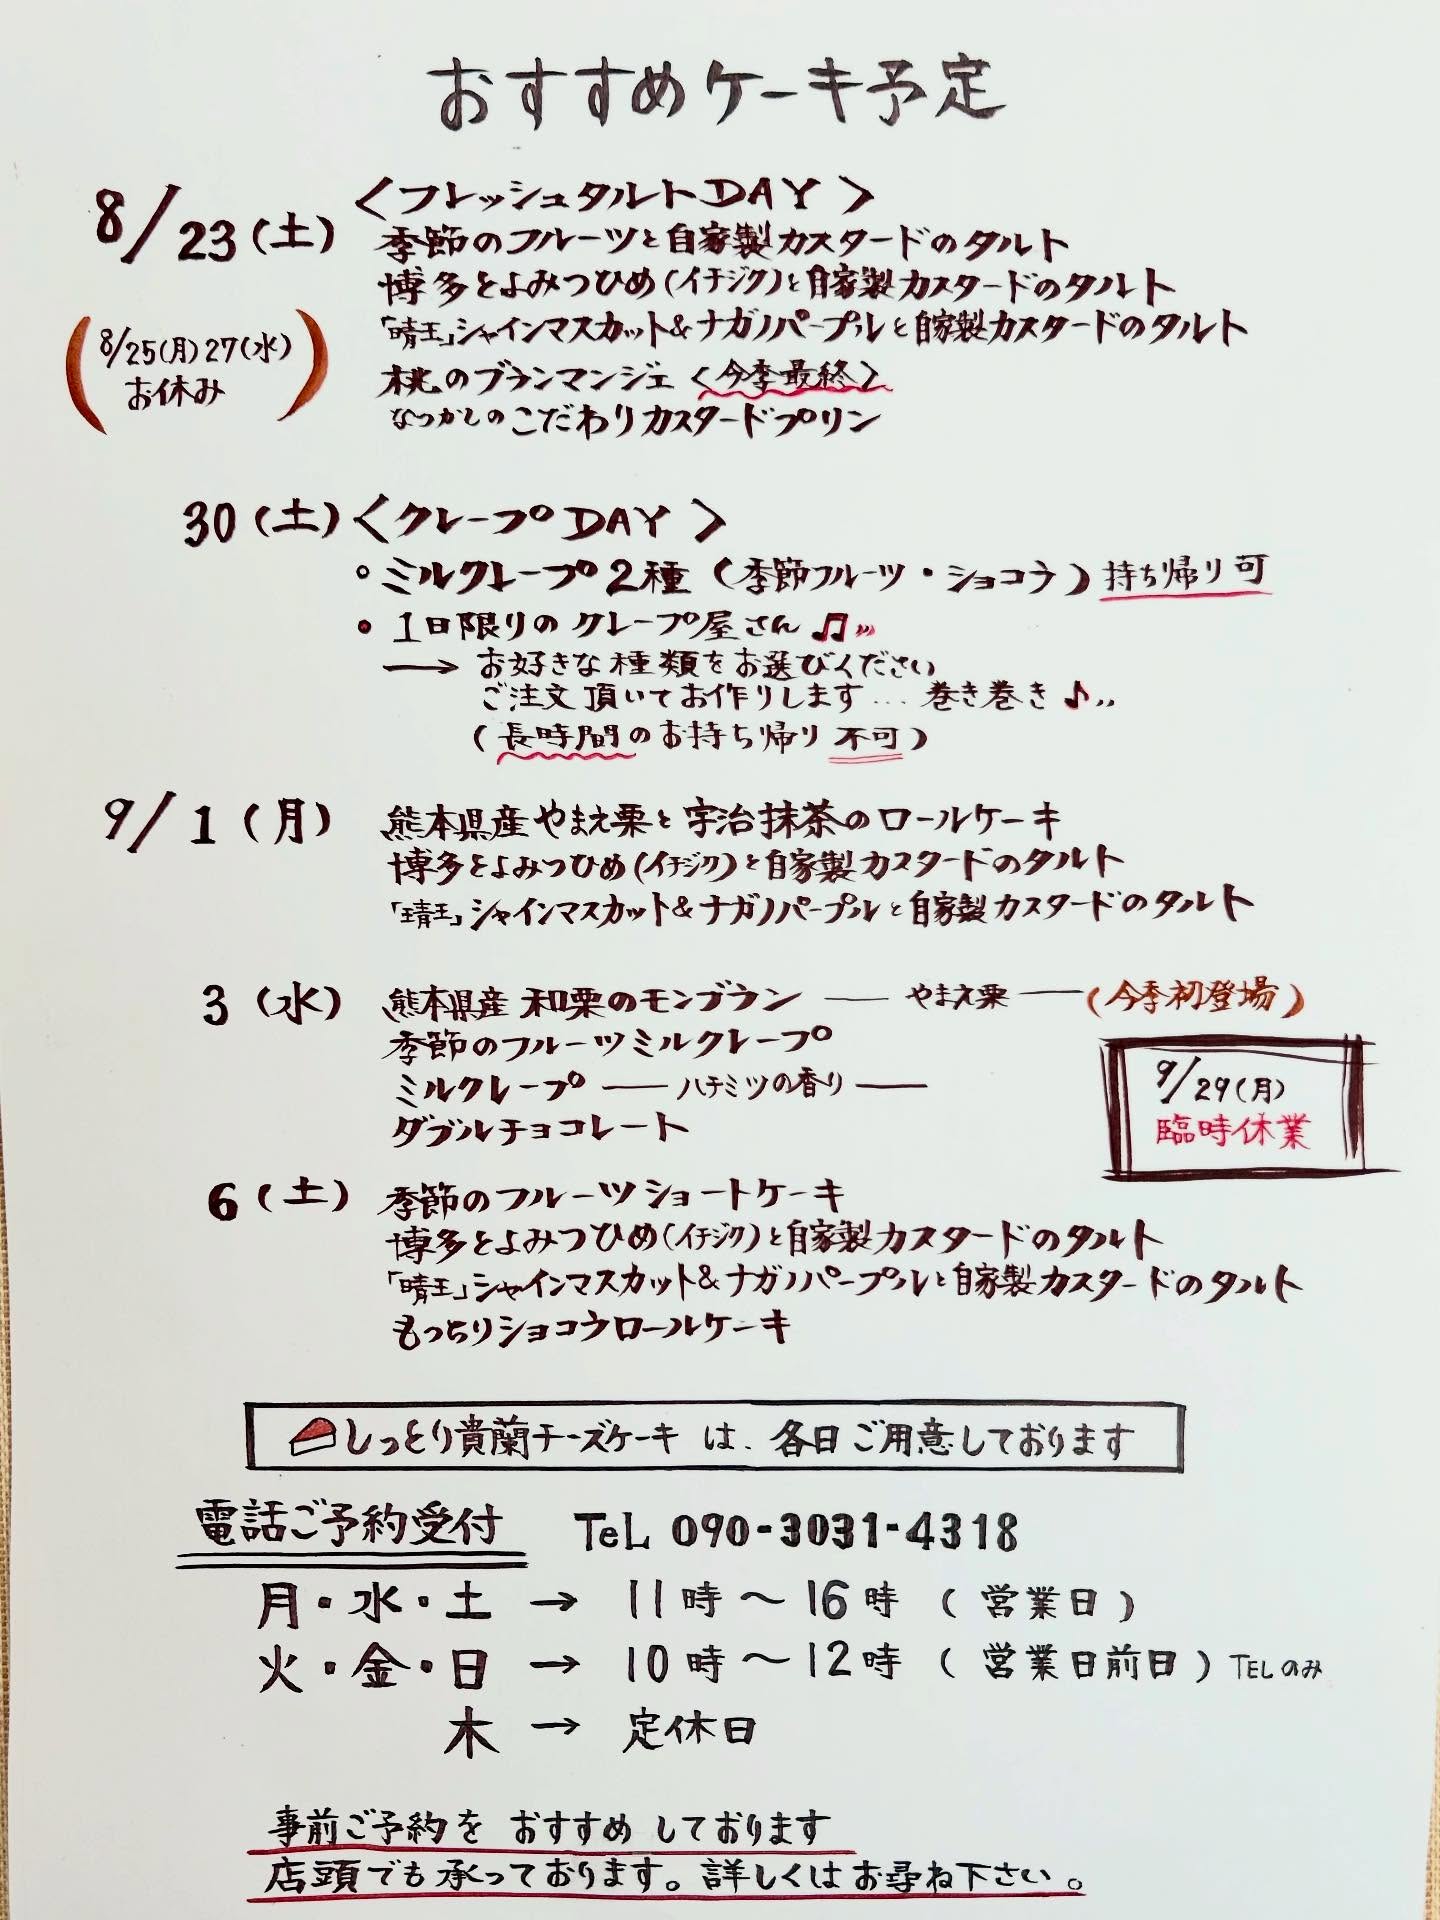 おすすめケーキ予定
8/23(土) 〈フレッシュタルトDAY〉
季節のフルーツと自家製カスタードのタルト
博多とよみつひめ(イチジク)と自家製カスタードのタルト
「晴王」シャインマスカット&ナガノパープルと自家製カスタードのタルト
(8/25(月)27(水)
お休み)
桃のブランマンジェ〈今季最終〉
なつかしのこだわりカスタードプリン
30(土)〈クレープDAY〉
◦ミルクレープ2種(季節フルーツ・ショコラ)持ち帰り可
• 1日限りのクレープ屋さん♫
→ お好きな種類をお選びください
ご注文頂いてお作りします… 巻き巻き♪
(長時間のお持ち帰り不可)
9/1(月) 熊本県産やまえ栗と宇治抹茶のロールケーキ
博多とよみつひめ(イチジク)と自家製カスタードのタルト
「晴王」シャインマスカット&ナガノパープルと自家製カスタードのタルト
3(水) 熊本県産 和栗のモンブラン ― やまえ栗 ―(今季初登場)
季節のフルーツミルクレープ
ミルクレープ ― ハチミツの香り ―
ダブルチョコレート
9/29(月)
臨時休業
6(土) 季節のフルーツショートケーキ
博多とよみつひめ(イチジク)と自家製カスタードのタルト
「晴王」シャインマスカット&ナガノパープルと自家製カスタードのタルト
もっちりショコラロールケーキ
しっとり貴蘭チーズケーキ は、各日ご用意しております
電話ご予約受付 TeL 090-3031-4318
月・水・土 → 11時〜16時 (営業日)
火・金・日 → 10時〜12時 (営業日前日) TELのみ
木 → 定休日
事前ご予約を おすすめ しております
店頭でも承っております。詳しくはお尋ね下さい。